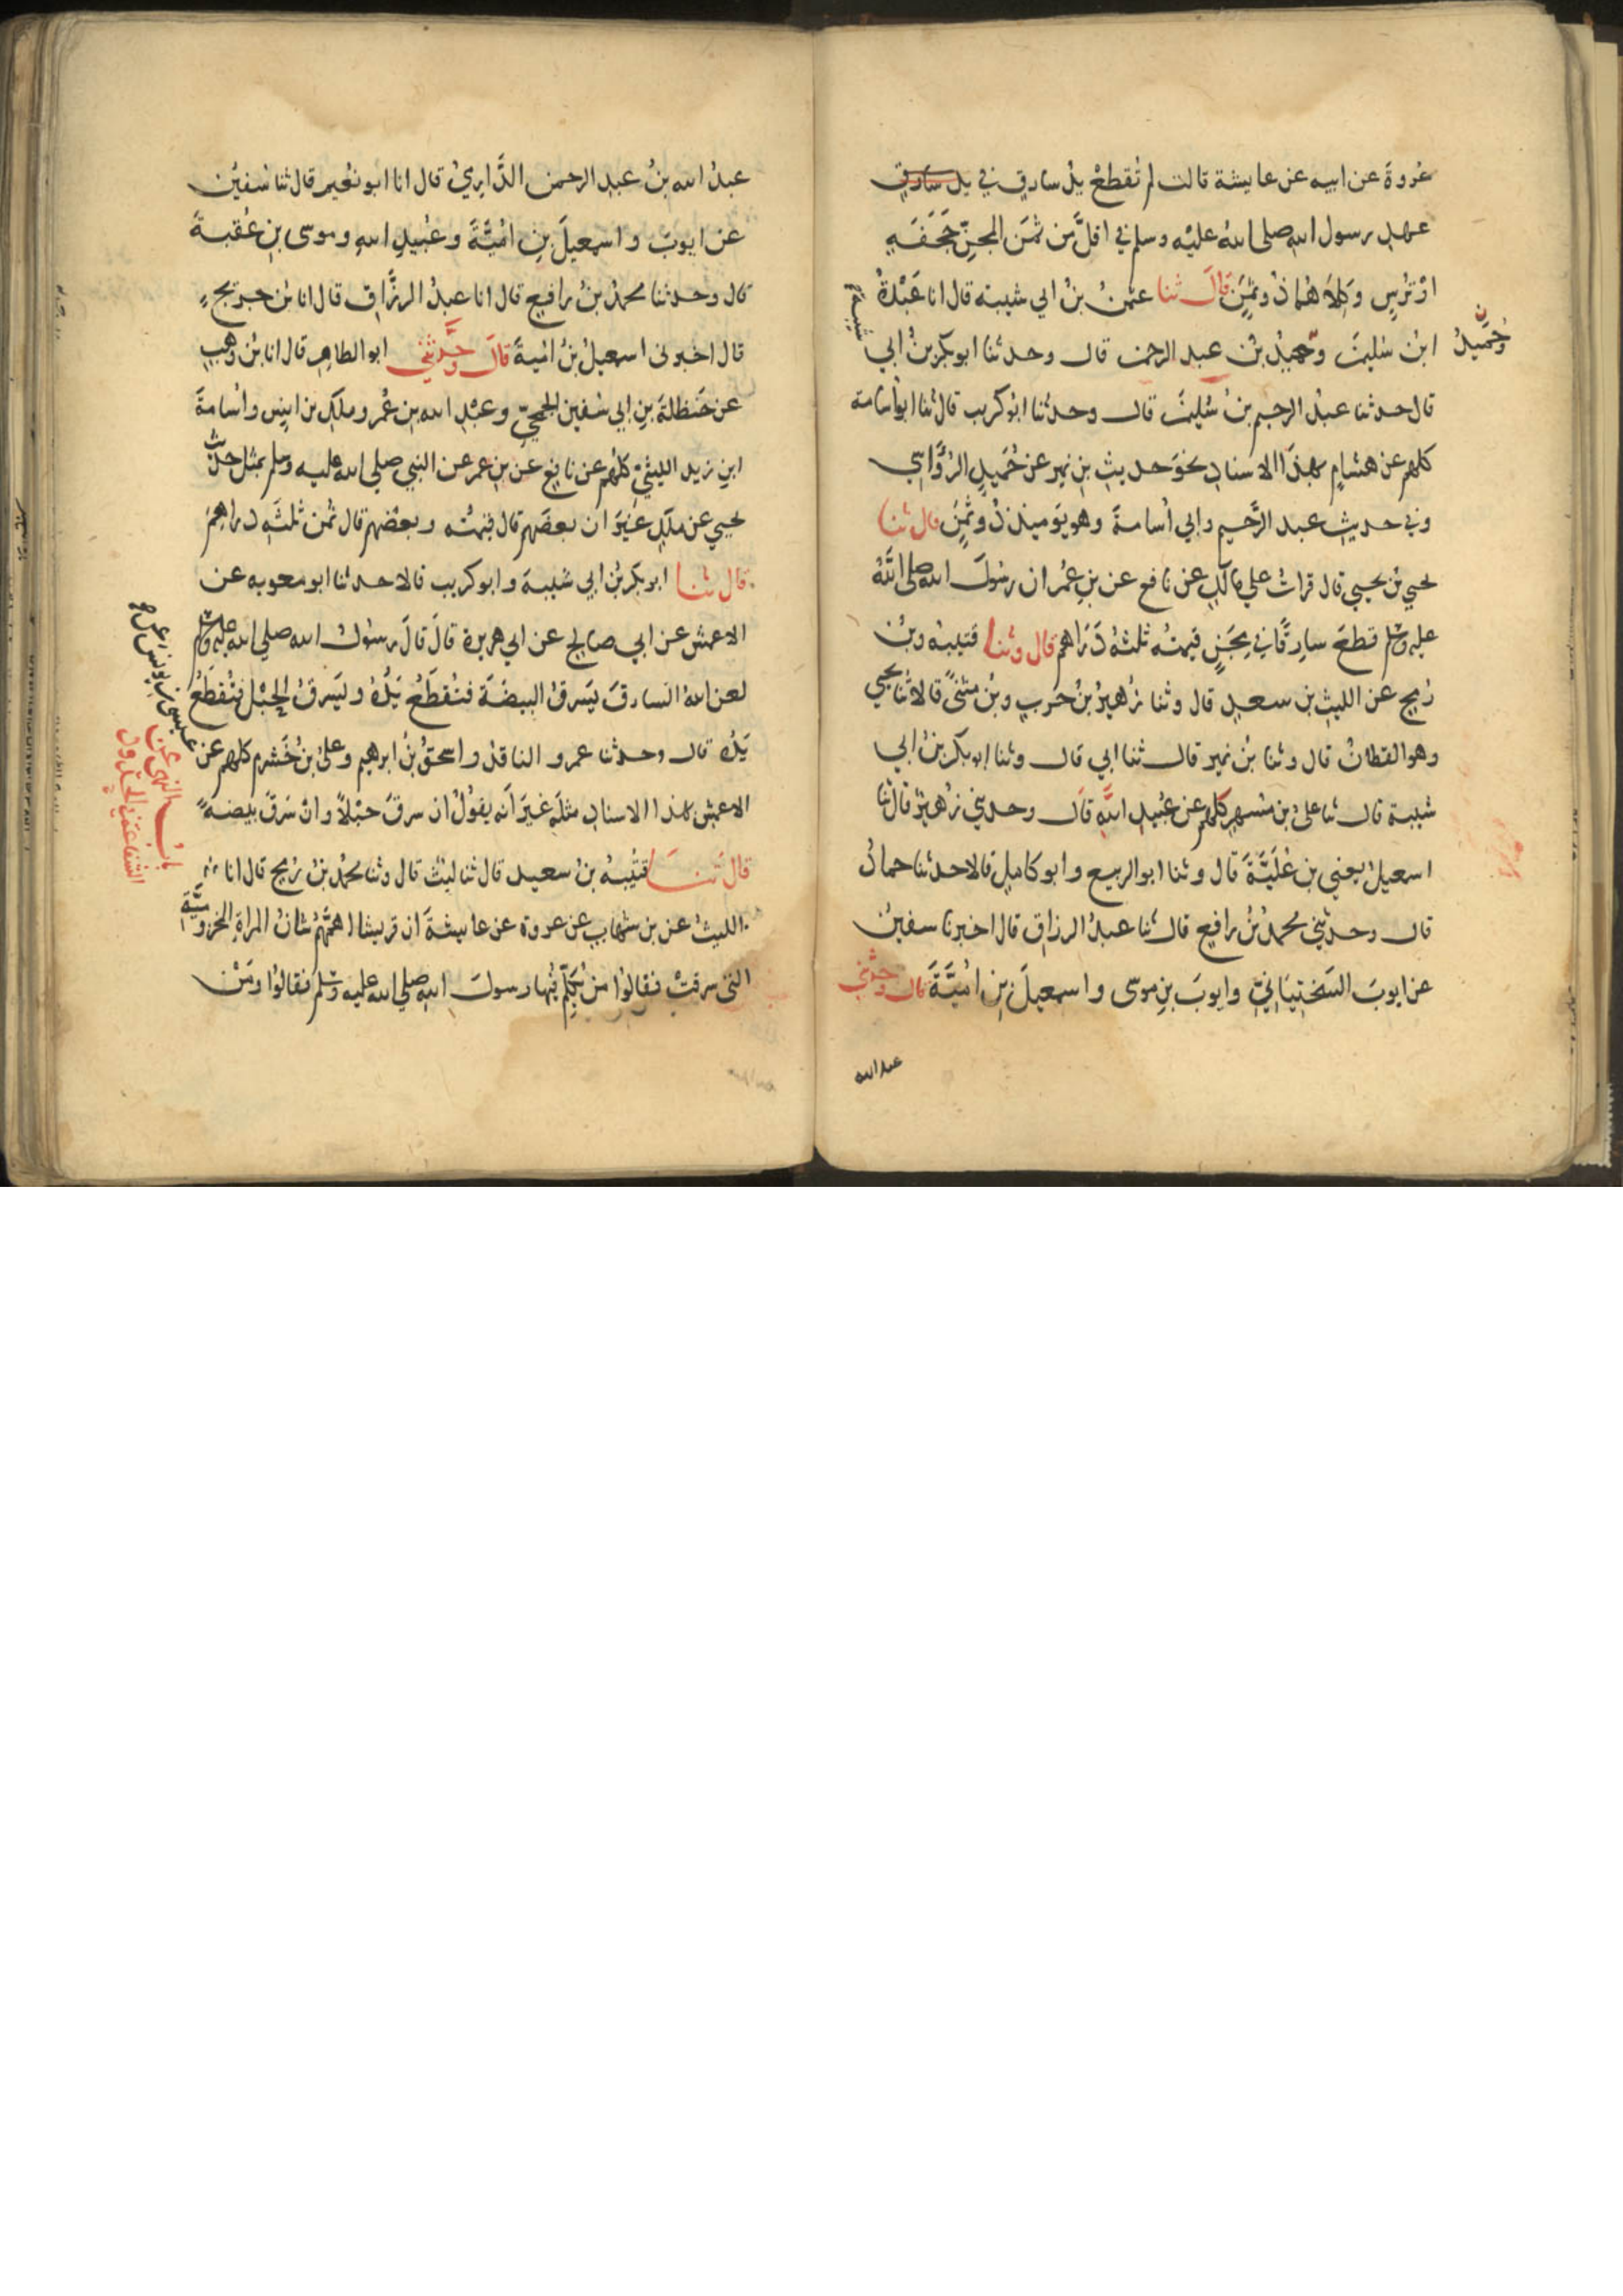 عروة عن ابيه عن عايشة قالت لم تُقطعْ يدُ سارقٍ في يد سارق
عهدِ رسول الله صلى الله عليْه وسلم في اقلَّ من ثمَن المجنّ حَجَفَةٍ
اوْ تُرسٍ وكلاهُما ذُو ثمَنٍ قالَ ثنا عثمنُ بنُ ابي شيبة قال انا عَبْدةُ
ابنُ سُليمنَ وحميدُ بنُ عبد الرحمن قال وحدثنا ابو بكر بنُ ابي
شيبة
وحُمَيدُ
قال حدثنا عبدُ الرحيم بنُ سُليمنَ قال وحدثنا ابُو كريب قال ثنا ابواُسامة
كلهم عن هشامٍ بهذا الاسنادِ نحوَ حديثِ بنِ نمير عن حُمَيدٍ الرُؤَاسِي
وفي حديثِ عبد الرَّحيمِ وابي اُسامةَ وهو يَوميذٍ ذُو ثمَنٍ قال ثنا
يحيي بنُ يحيي قال قراتُ علي مالكٍ عن نافع عن بنِ عُمَر ان رسُولَ الله صلى اللهُ
عليه وسلم قطعَ سارقًا في مِجَنٍ قيمتُه ثلثةُ دَرَاهم قال وثنا قتيبةُ وبنُ
رُمح عن الليثِ بن سعدٍ قال وثنا زُهيرُ بنُ حربٍ وبنُ مثنًى قالا ثنا يحيي
وهو القطانُ قال وثنا بنُ نمير قال ثنا ابي قال وثنا ابو بكر بنُ ابي
شيبة قال ثنا عليُ بن مُسهِرٍ كلهم عن عُبيدِ اللهِ قال وحدثني زهيرُ قال ثنا
اسمعيلُ يعني بن عُلَيَّةَ قال وثنا ابو الربيع وابو كاملٍ قالا حدثنا حمادُ
قال وحدثني محمدُ بنُ رافعٍ قال ثنا عبدُ الرزاق قال اخبرنا سفينُ
عن ايوبَ السَختِيَانيّ وايوبَ بنِ موسى واسمعيلَ بنِ اُميَّةَ قال وحدثني
عبد الله
عبدُ الله بنُ عبدِ الرحمن الدَّارِميُ قال انا ابو نُعيم قال ثنا سُفيٰن
عن ايوبَ واسمعيلَ بنِ اُميَّةَ وعُبيدِ اللهِ وموسى بنِ عُقبةَ
قال وحدثنا محمدُ بنُ رافعٍ قال انا عبدُ الرزَّاق قال انا بن جريج
قال اخبرني اسمعيلُ بنُ اُميةَ قالَ وحدَّثني ابو الطاهر قال انا بنُ وهبٍ
عن حَنظلةَ بنِ ابي سُفين الجمحيّ وعبْدِ الله بن عُمر وملكِ بن انسٍ واُسامةَ
ابنِ زيد الليثيّ كلهُم عن نافعٍ عن بنِ عمر عن النبي صلي الله عليه وسلم بمثل حديثِ
يحيي عن ملكٍ غيرَ ان بعضَهم قال قيمتُه وبعضُهم قال ثمن ثلثةِ دراهمَ
قال ثنا ابو بكر بنُ ابي شيبةَ وابو كريب قالا حدثنا ابو معوية عن
الاعمش عن ابي صالحٍ عن ابي هريرة قالَ قالَ رسُولُ الله صلي الله عليه وسلم
لعن اللهُ السارقَ يَسرقُ البيضَة فتُقطَعُ يَدُهُ ويَسرقُ الحَبْلَ فتُقطَعُ
يَدُه قال وحدثنا عمرو الناقدُ واسحقُ بنُ ابرهيم وعليُ بنُ خَشرم كلهم عن
عيسى بن يونس عن
الاعمش بهذا الاسنادِ مثلَه غيرَ اَنه يقولُ ان سرقَ حَبْلًا وانْ سَرقَ بيضةً
باب النهي عن
الشفاعة في الحدود
قال ثنا قتيبةُ بنُ سعيد قال ثنا ليثٌ قال وثنا محمدُ بنُ رُمح قال انا
الليثُ عن بن شهابٍ عن عروة عن عايشةَ ان قريشا اهمَّهُم شانُ المراةِ المخزوميَّة
التى سرقتْ فقالُوا مَن يُكلِّمُ فيها رسولَ الله صلي الله عليه وسلم فقالُوا ومَنْ